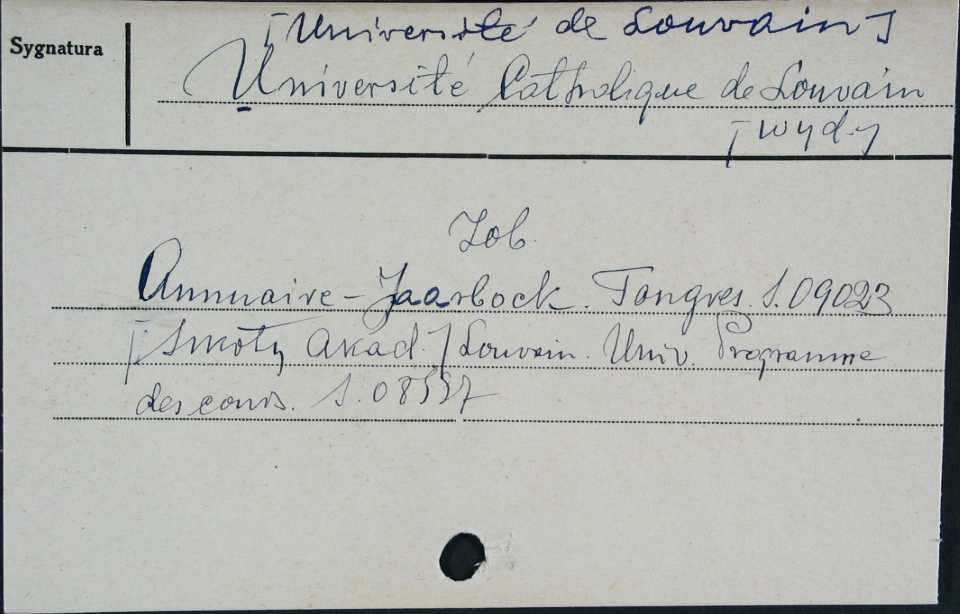 Sygnatura
[Université de Louvain]
Université Catholique de Louvain
[wyd.]
Zob.
Annuaire-Jaarboek. Tongres. S.09023
[Szkoły Akad.] Louvain. Univ. Programme
des cours. S.08537